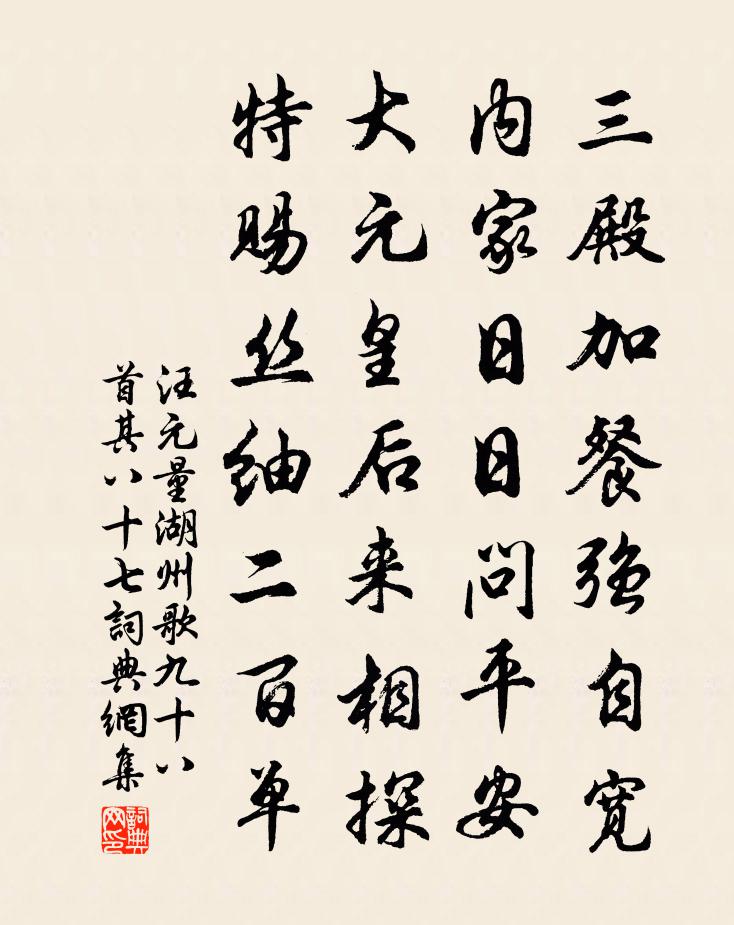 三殿加餐强自宽
内家日日问平安
大元皇后来相探
特赐丝䌷二百单
汪元量湖州歌九十八
首其八十七詞典網集
詞典
网印